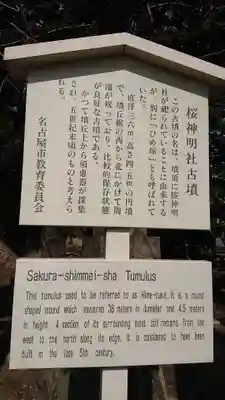 桜神明社古墳
この古墳の名は、墳頂に桜神明
社が祀られていることに由来する
が、別に「ひめ塚」とも呼ばれて
いた。
直径三六m、高さ四・五mの円墳
で、墳丘裾の西から北にかけて周
濠が残っており、比較的保存状態
が良好な古墳である。
かつて墳丘上から須恵器が採集
され、五世紀末頃のものと考えら
れる。
名古屋市教育委員会
Sakura-shimmei-sha Tumulus
This tumulus used to be referred to as Hime-zuka. It is a round
shaped mound which measures 36 meters in diameter and 4.5 meters
in height. A section of its surrounding moat still remains from the
west to the north along its edge. It is considered to have been
built in the late 5th century.